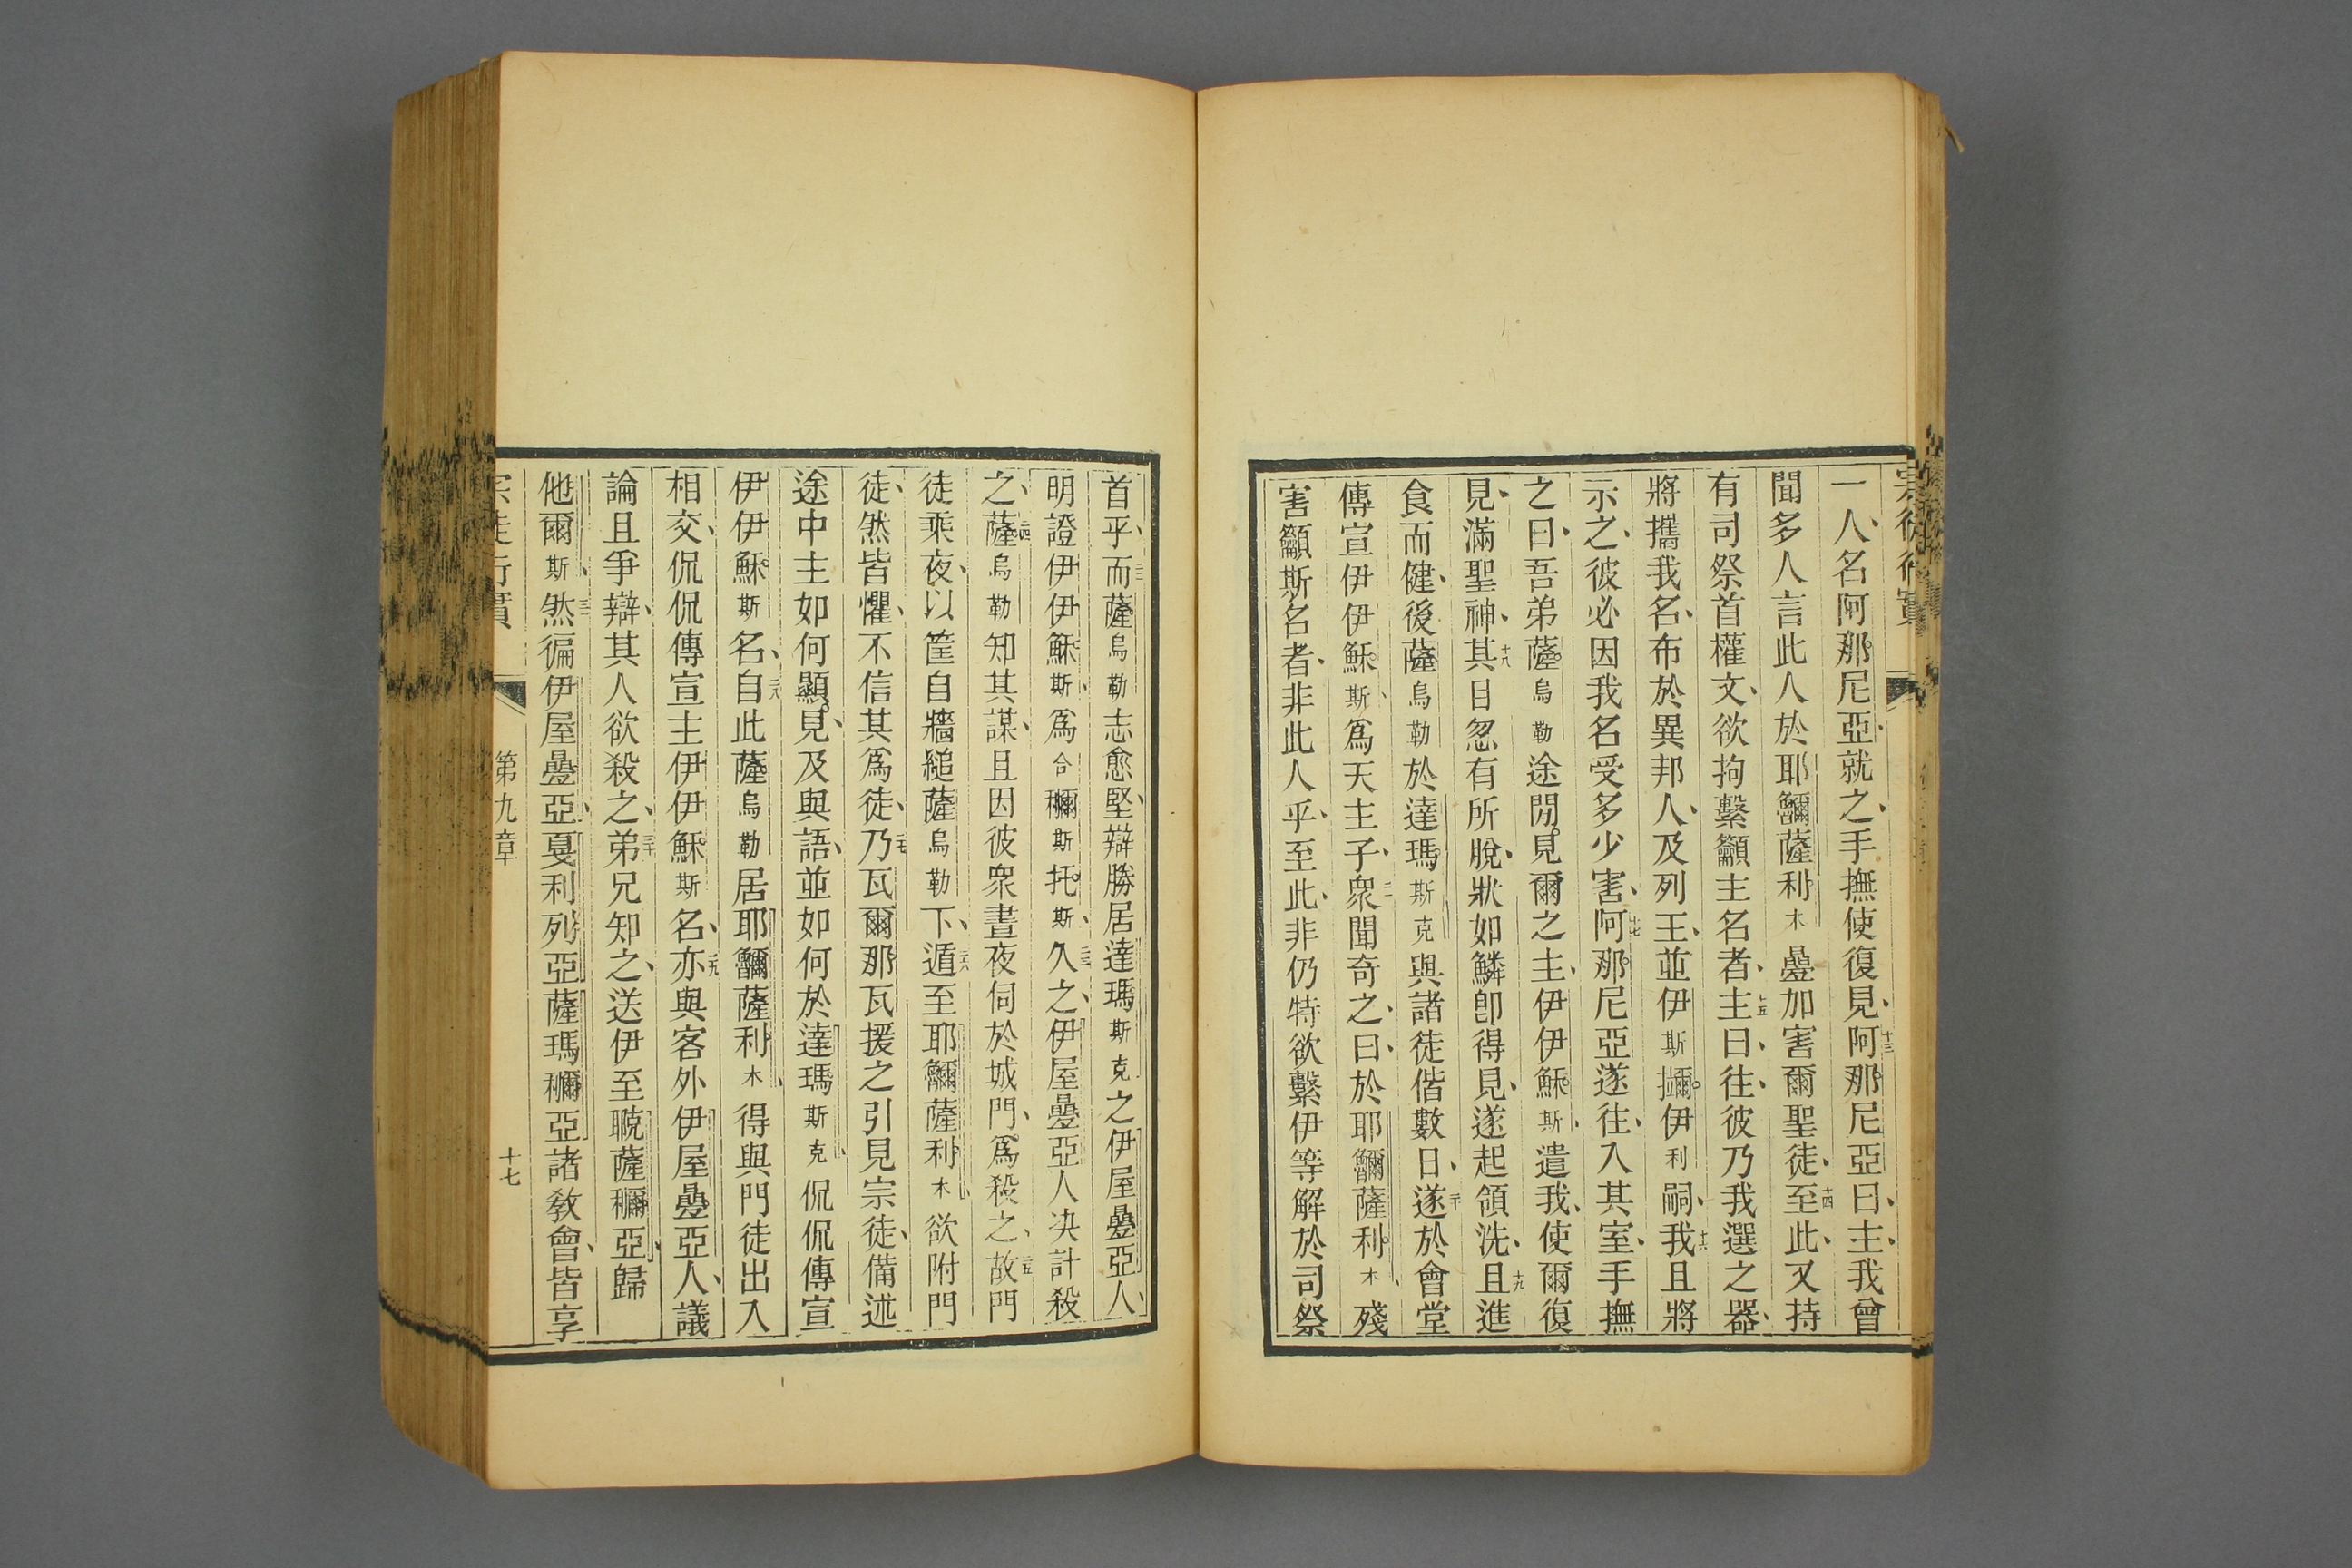 一人、名阿那尼亞、就之、手撫使復見、十三阿那尼亞曰、主、我曾
聞多人言此人於耶𨤍薩利木𣊫加害爾聖徒、十四至此、又持
有司祭首權文、欲拘繫籲主名者、十五主曰、往、彼乃我選之器、
將攜我名、布於異邦人、及列王、並伊斯𤫩伊利嗣、十六我且將
示之、彼必因我名受多少害、十七阿那尼亞遂往、入其室、手撫
之曰、吾弟薩烏勒途間見爾之主、伊伊穌斯、遣我、使爾復
見、滿聖神、十八其目忽有所脫、狀如鱗卽得見、遂起領洗、十九且進
食而健、後薩烏勒於達瑪斯克與諸徒偕數日、二十遂於會堂
傳宣伊伊穌斯、爲天主子、二一衆聞奇之、曰、於耶𨤍薩利木、殘
害籲斯名者、非此人乎、至此、非仍特欲繫伊等解於司祭
首乎、二二而薩烏勒志愈堅、辯勝居達瑪斯克之伊屋疊亞人、
明證伊伊穌斯、爲合穪斯托斯、二三久之、伊屋疊亞人決計殺
之、二四薩烏勒知其謀、且因彼衆晝夜伺於城門、爲殺之、二五故門
徒乘夜、以筐自牆縋薩烏勒下、二六遁至耶𨤍薩利木、欲附門
徒、然皆懼、不信其爲徒、二七乃瓦爾那瓦援之引見宗徒、備述
途中主如何顯見、及與語、並如何於達瑪斯克、侃侃傳宣
伊伊穌斯名、二八自此薩烏勒居耶𨤍薩利木、得與門徒出入
相交、侃侃傳宣主伊伊穌斯名、二九亦與客外伊屋疊亞人、議
論且爭辯、其人欲殺之、三十弟兄知之、送伊至𦗟薩穪亞、歸
他爾斯、三一然徧伊屋疊亞、戛利列亞薩瑪穪亞諸敎會、皆享
宗徒行實 第九章 十七